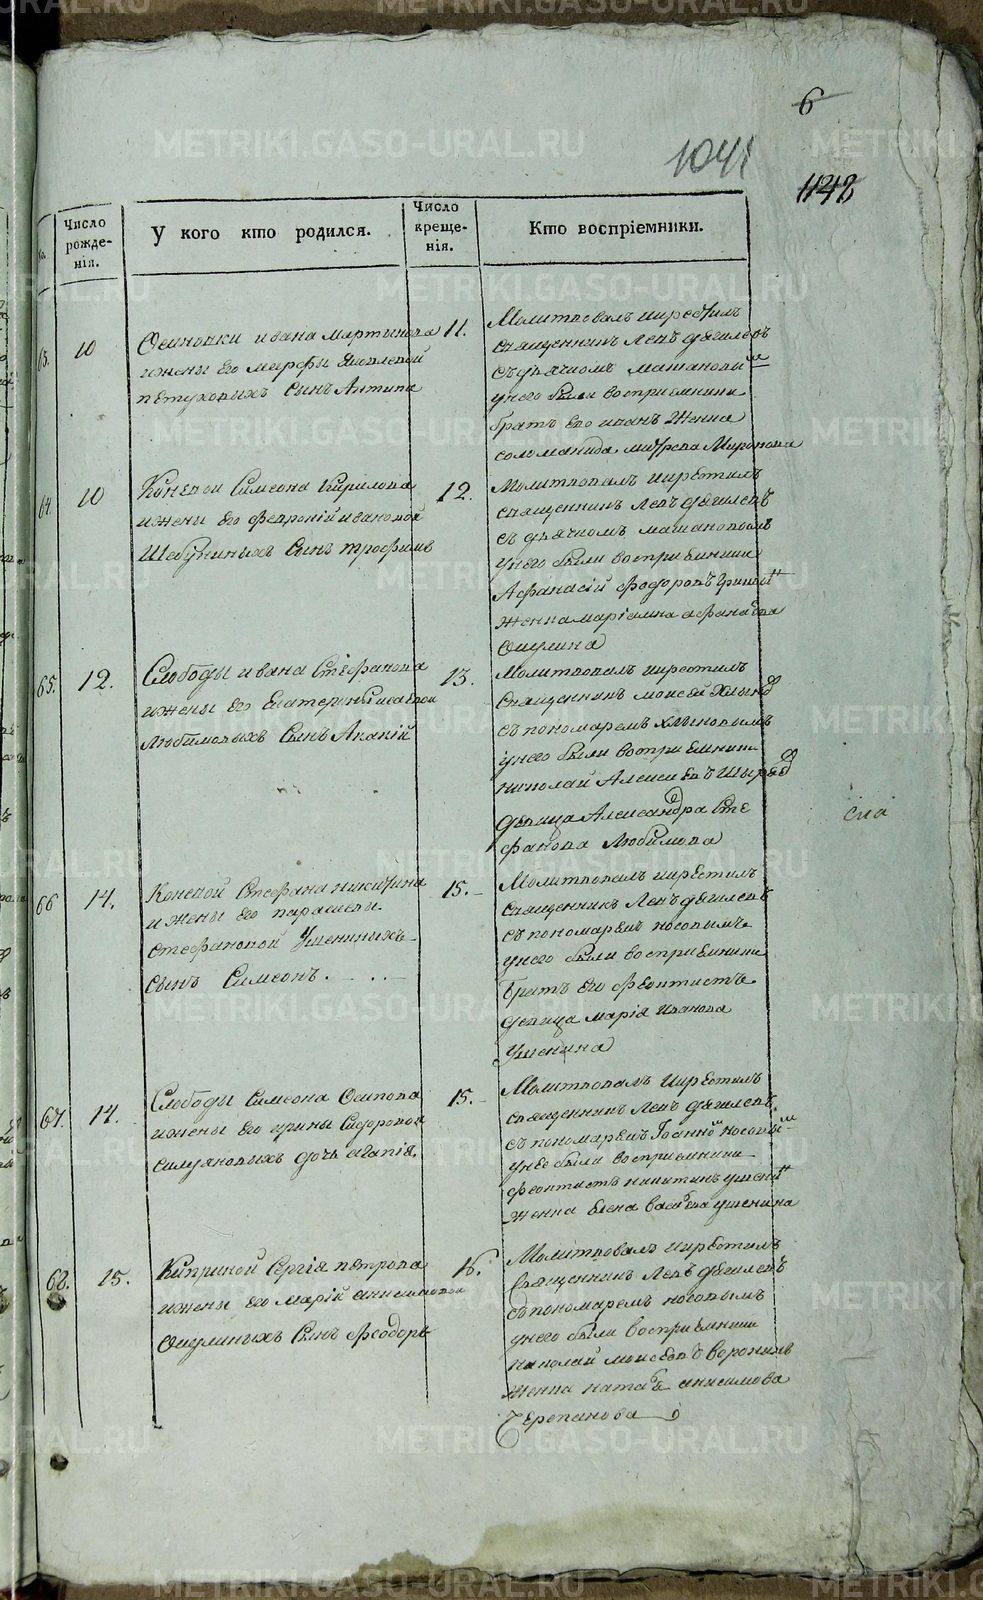 6
1041
1148
Число рожденія.
У кого кто родился.
Число крещенія.
Кто воспріемники.
63. 10
Осиновки ивана мартинова
ижены Его марфы Яковлевой
петуховыхъ Сынъ Антипа
11.
Молитвовалъ икрестилъ
священникъ Левъ дягилевъ
съдьячкомъ
унего были восприемники
братъ Его иванъ Женка
соломанида Миронова
64. 10
Коневой Симеона Кирилова
ижены Его февроніи ивановой
Шабуниныхъ Сынъ трофимъ
12.
Молитвовалъ икрестилъ
священникъ Левъ дягилевъ
съ дьячкомъ
унего были восприемники
Афанасій федоровъ
женка маріамна
65. 12.
Слободы ивана Стефанова
ижены Его Екатерины исаевой
любимовыхъ Сынъ Акакій
13.
Молитвовалъ икрестилъ
Священникъ моисей Хлыновъ
съ пономаремъ хлыновымъ
унего были восприемники
николай Алексеевъ
девица Александра Сте
фанова Любимова
сиа
66 14.
Коневой Стефана никитина
и жены Его параскевы
стефановой Ушениныхъ
сынъ Симеонъ.
15.
Молитвовалъ икрестилъ
священникъ Левъ дягилевъ
съ пономаремъ носовымъ
унего были восприемники
братъ Его феоктистъ
девица марія иванова
Ушенина
67. 14.
Слободы Симеона Осипова
ижены Его ирины Сидоровой
силуяновыхъ дочь агапія.
15.
Молитвовалъ икрестилъ
священникъ Левъ дягилевъ
съ пономаремъ Іоанномъ носовымъ
унео были восприемники
феоктистъ никитинъ ушенинъ
женка Елена ушенина
68. 15.
Киприной Сергія петрова
ижены Его маріи анисимовой
Окулиныхъ Сынъ феодоръ
16.
Молитвовалъ икрестилъ
Священникъ Левъ дягилевъ
съпономаремъ носовымъ
унего были восприемники
николай моисеевъ воронинъ
женка анисимова
Черепанова
METRIKI.GASO-URAL.RU